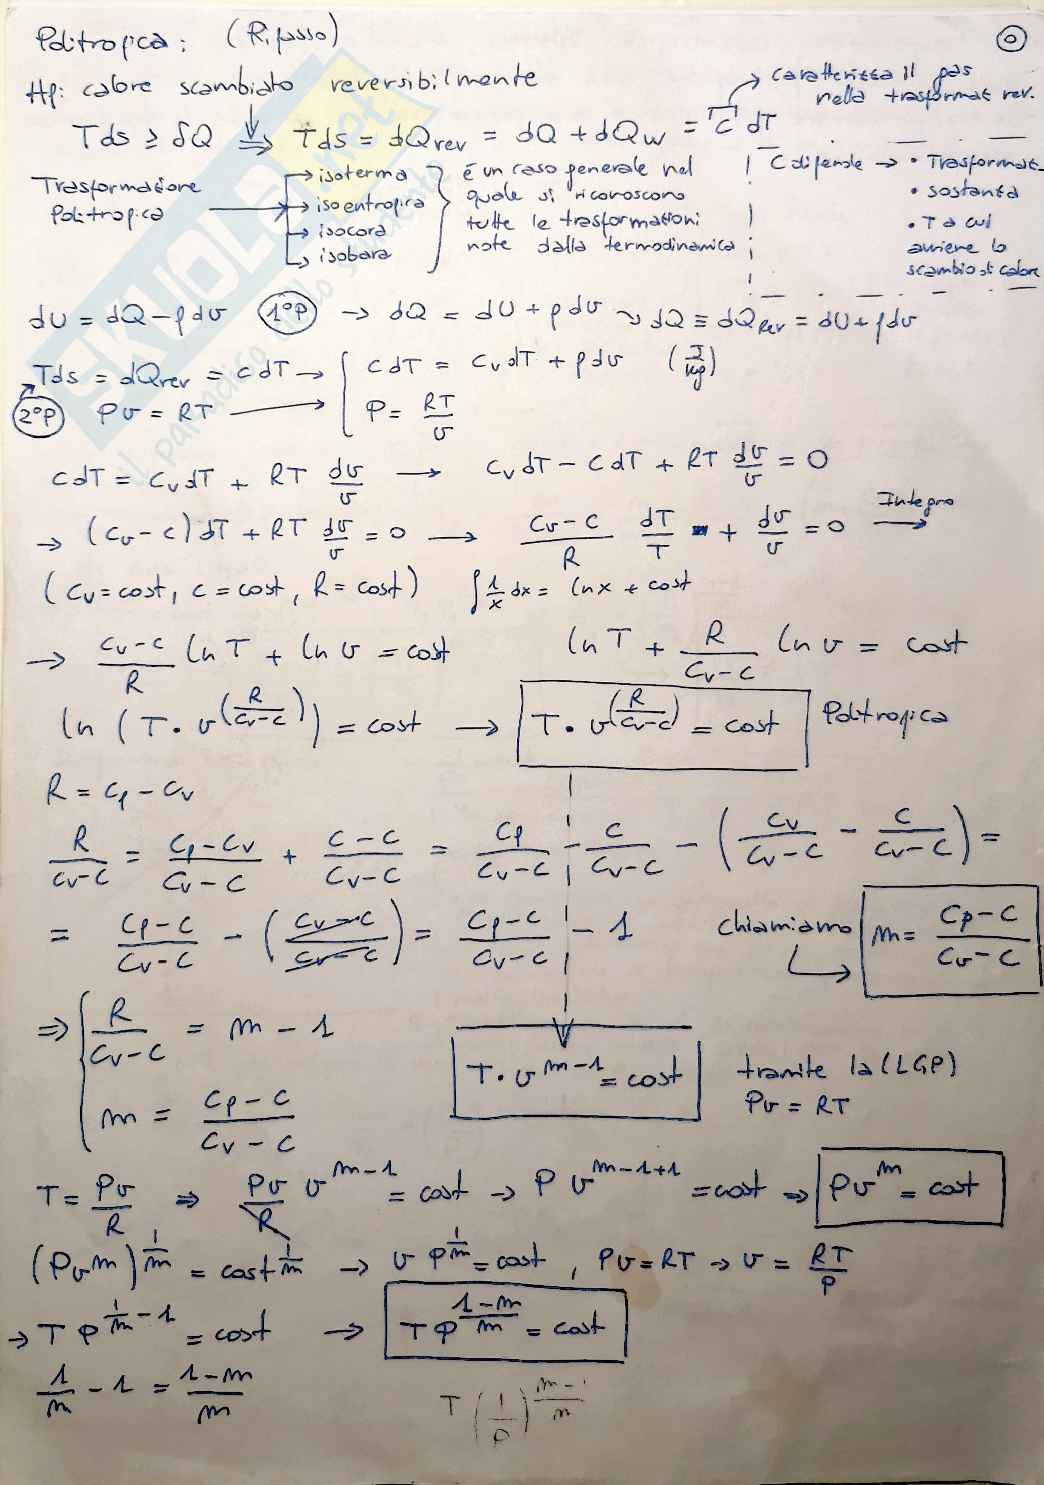 Politropica: (Ripasso)
0
Hp: calore scambiato reversibilmente
Tds ≥ δQ ⇒ Tds = dQrev = dQ + dQw = "C" dT
→ caratterizza il gas nella trasformaz rev.
Trasformazione Politropica → isoterma
→ isoentropica
→ isocora
→ isobara
è un caso generale nel
quale si riconoscono
tutte le trasformazioni
note dalla termodinamica
C dipende → • Trasformaz.
• sostanza
• T a cui
avviene lo
scambio di calore
dU = dQ - pdv (1°P) → dQ = dU + pdv ↝ dQ ≡ dQRev = dU + pdv
Tds = dQrev = cdT → { cdT = cvdT + pdv (J/kg)
(2°P) Pv = RT → P = RT/v
cdT = cvdT + RT dv/v → cvdT - cdT + RT dv/v = 0
→ (cv-c)dT + RT dv/v = 0 → (cv-c)/R dT/T + dv/v = 0 Integro →
(cv=cost, c=cost, R=cost) ∫ 1/x dx = lnx + cost
→ (cv-c)/R ln T + ln v = cost ln T + R/(cv-c) ln v = cost
ln (T · v^(R/(cv-c))) = cost → T · v^(R/(cv-c)) = cost Politropica
R = cp - cv
R/(cv-c) = (cp-cv)/(cv-c) + (c-c)/(cv-c) = cp/(cv-c) - c/(cv-c) - (cv/(cv-c) - c/(cv-c)) =
= (cp-c)/(cv-c) - ((cv-c)/(cv-c)) = (cp-c)/(cv-c) - 1 chiamiamo m = (cp-c)/(cv-c)
⇒ { R/(cv-c) = m - 1
m = (cp-c)/(cv-c)
T · v^(m-1) = cost tramite la (LGP)
Pv = RT
T = Pv/R ⇒ Pv/R v^(m-1) = cost → P v^(m-1+1) = cost ⇒ Pv^m = cost
(Pv^m)^(1/m) = cost^(1/m) → v P^(1/m) = cost, Pv = RT → v = RT/P
→ T P^(1/m - 1) = cost → T P^((1-m)/m) = cost
1/m - 1 = (1-m)/m
T (1/P)^((m-1)/m)
SKUOLA.net